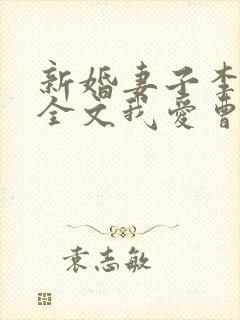 新婚妻子李
全文我爱曹
袁志敏